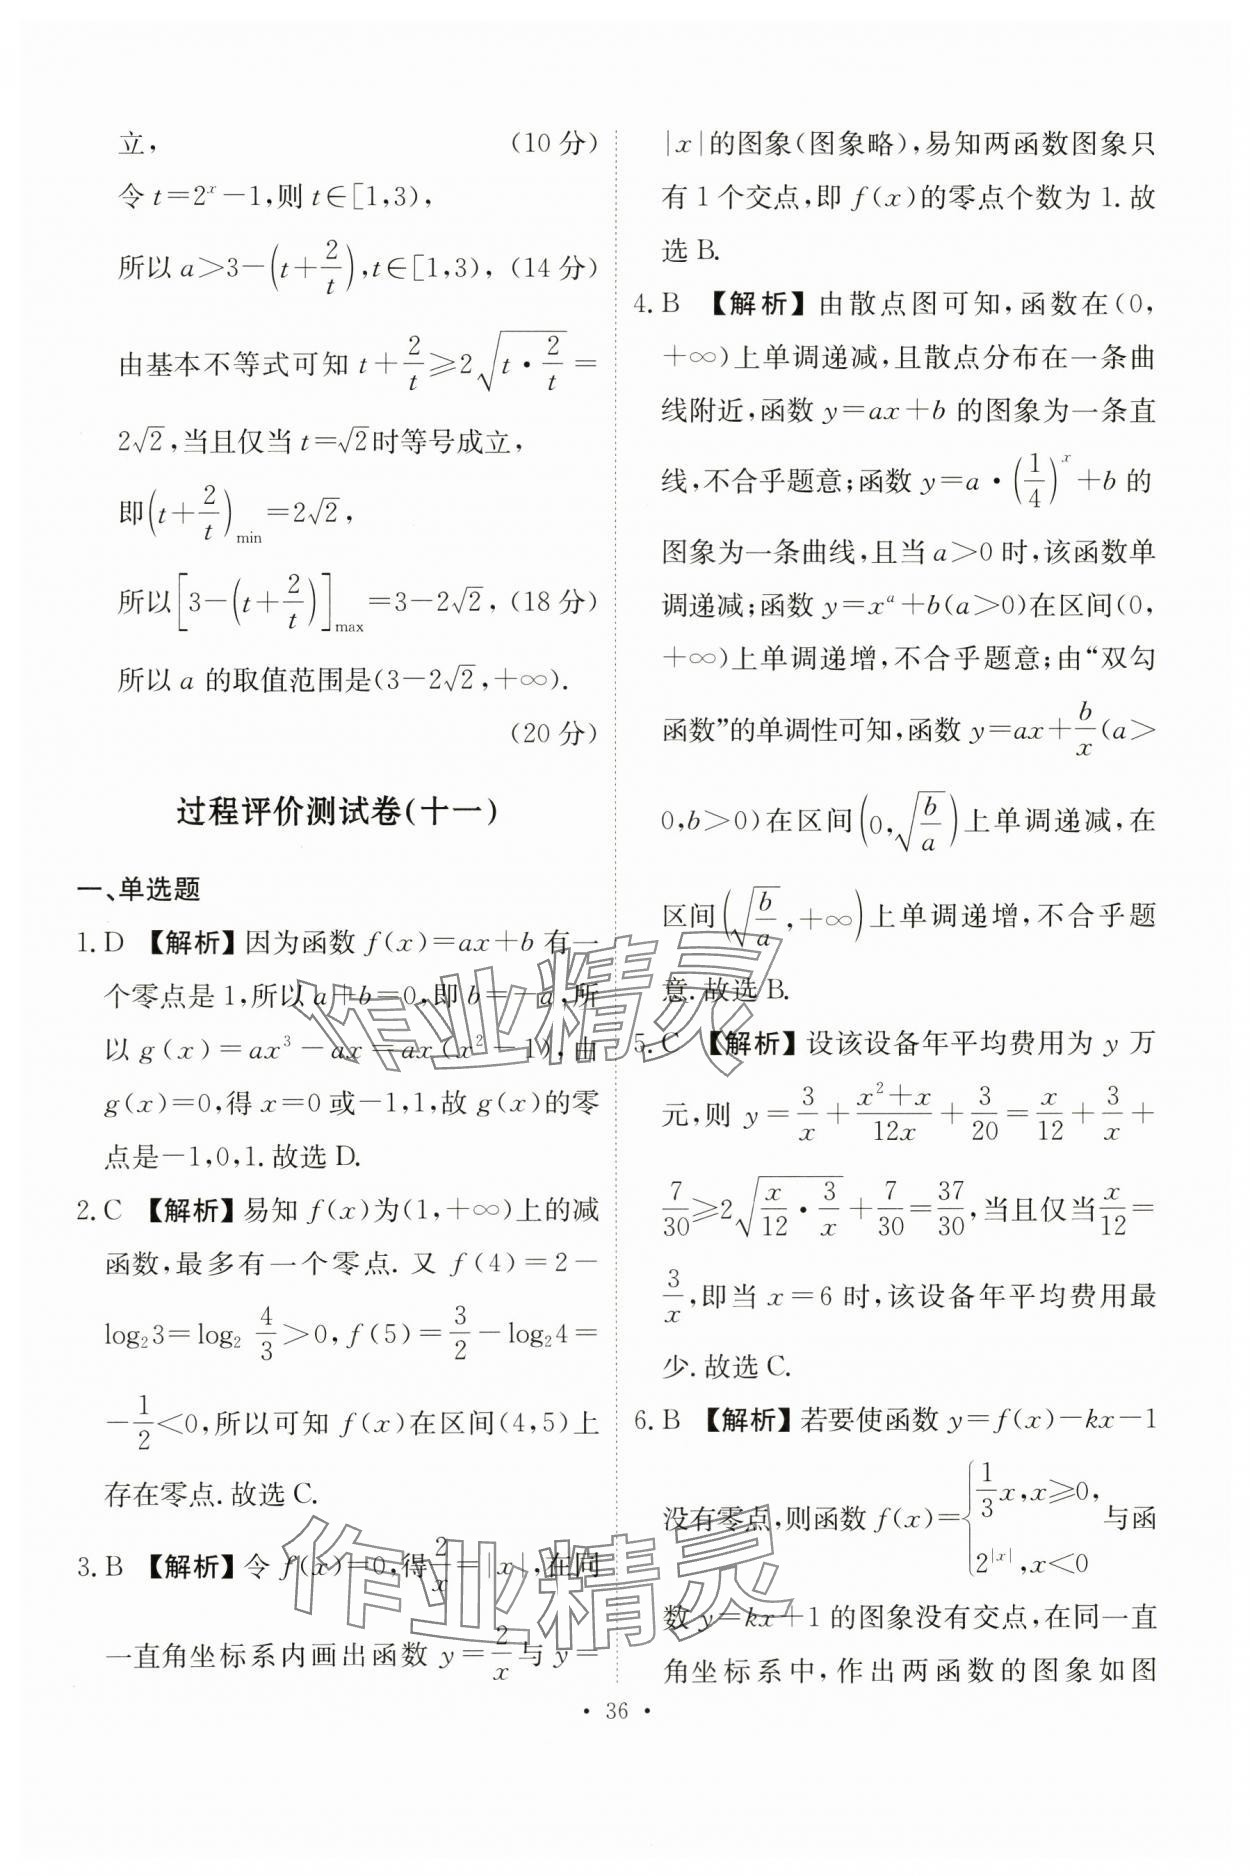 立, (10 分)
令 t=2^x-1,则 t∈[1,3),
所以 a>3-(t+2/t),t∈[1,3), (14 分)
由基本不等式可知 t+2/t≥2√(t·2/t)=
2√2,当且仅当 t=√2时等号成立,
即(t+2/t)min=2√2,
所以[3-(t+2/t)]max=3-2√2, (18 分)
所以 a 的取值范围是(3-2√2,+∞).
(20 分)
过程评价测试卷(十一)
一、单选题
1. D 【解析】因为函数 f(x)=ax+b 有一
个零点是 1,所以 a+b=0,即 b=-a,所
以 g(x)=ax³-ax=ax(x²-1),由
g(x)=0,得 x=0 或-1,1,故 g(x)的零
点是-1,0,1.故选 D.
2. C 【解析】易知 f(x)为(1,+∞)上的减
函数,最多有一个零点. 又 f(4)=2-
log₂3=log₂ 4/3>0,f(5)=3/2-log₂4=
-1/2<0,所以可知 f(x)在区间(4,5)上
存在零点.故选 C.
3. B 【解析】令 f(x)=0,得2/x=|x|,在同
一直角坐标系内画出函数 y=2/x与 y=
|x|的图象(图象略),易知两函数图象只
有 1 个交点,即 f(x)的零点个数为 1.故
选 B.
4. B 【解析】由散点图可知,函数在(0,
+∞)上单调递减,且散点分布在一条曲
线附近,函数 y=ax+b 的图象为一条直
线,不合乎题意;函数 y=a·(1/4)^x+b 的
图象为一条曲线,且当 a>0 时,该函数单
调递减;函数 y=x^a+b(a>0)在区间(0,
+∞)上单调递增,不合乎题意;由“双勾
函数”的单调性可知,函数 y=ax+b/x(a>
0,b>0)在区间(0,√(b/a))上单调递减,在
区间(√(b/a),+∞)上单调递增,不合乎题
意.故选 B.
5. C 【解析】设该设备年平均费用为 y 万
元,则 y=3/x+(x²+x)/12x+3/20=x/12+3/x+
7/30≥2√(x/12·3/x)+7/30=37/30,当且仅当x/12=
3/x,即当 x=6 时,该设备年平均费用最
少.故选 C.
6. B 【解析】若要使函数 y=f(x)-kx-1
没有零点,则函数 f(x)={1/3x,x≥0, 2^|x|,x<0 与函
数 y=kx+1 的图象没有交点,在同一直
角坐标系中,作出两函数的图象如图
· 36 ·
作业精灵
作业精灵